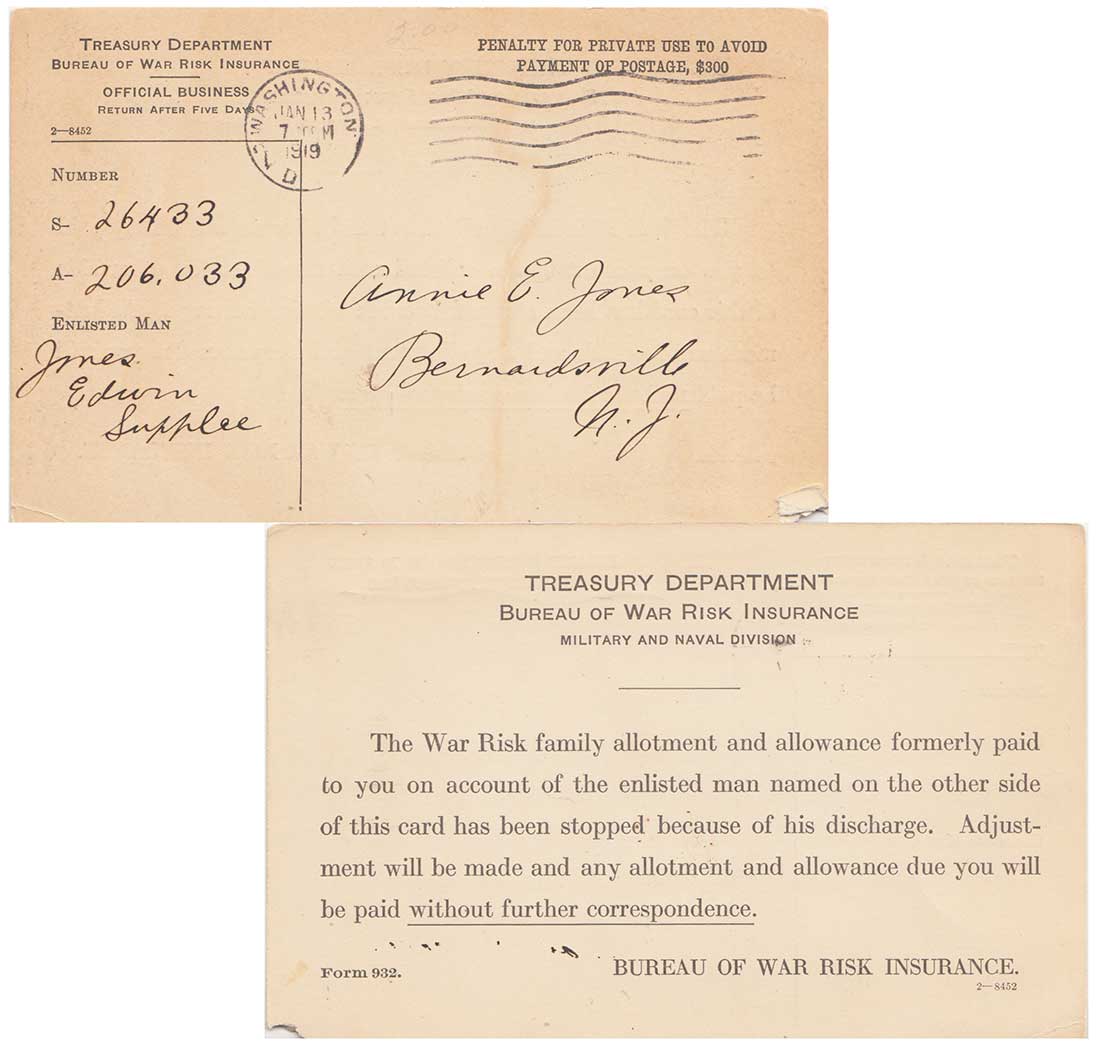 TREASURY DEPARTMENT
BUREAU OF WAR RISK INSURANCE
OFFICIAL BUSINESS
RETURN AFTER FIVE DAYS
2—8452
PENALTY FOR PRIVATE USE TO AVOID
PAYMENT OF POSTAGE, $300
WASHINGTON
JAN 13
7 M
1919
D
NUMBER
S- 26433
A- 206.033
ENLISTED MAN
Jones
Edwin
Supplee
Annie E. Jones
Bernardsville
N. J.
TREASURY DEPARTMENT
BUREAU OF WAR RISK INSURANCE
MILITARY AND NAVAL DIVISION
The War Risk family allotment and allowance formerly paid
to you on account of the enlisted man named on the other side
of this card has been stopped because of his discharge. Adjust-
ment will be made and any allotment and allowance due you will
be paid without further correspondence.
Form 932.
BUREAU OF WAR RISK INSURANCE.
2—8452